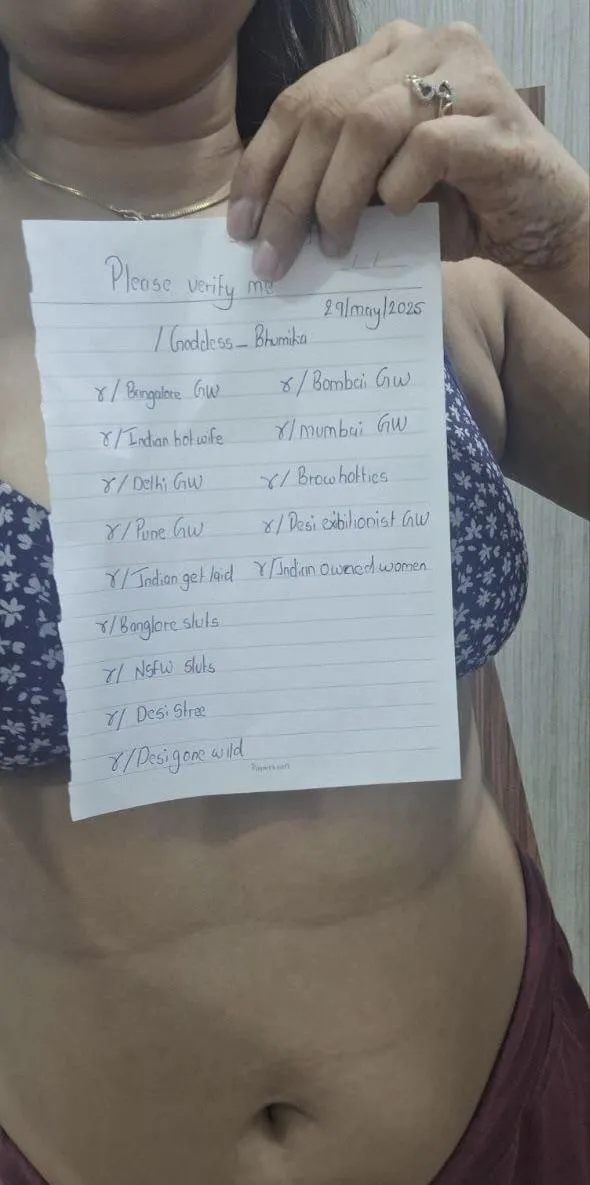 Please verify me
29/may/2025
/Goddess_Bhumika
r/Bangalore GW
r/Bombai GW
r/Indian hotwife
r/mumbai GW
r/Delhi GW
r/Browhotties
r/Pune GW
r/Desi exibilionist GW
r/Indian get laid
r/Indian owned women
r/Banglore sluts
r/ NSFW sluts
r/ Desi Stree
r/Desi gone wild